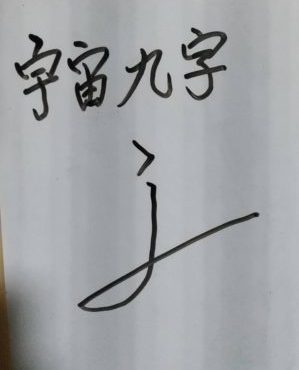 宇宙九字